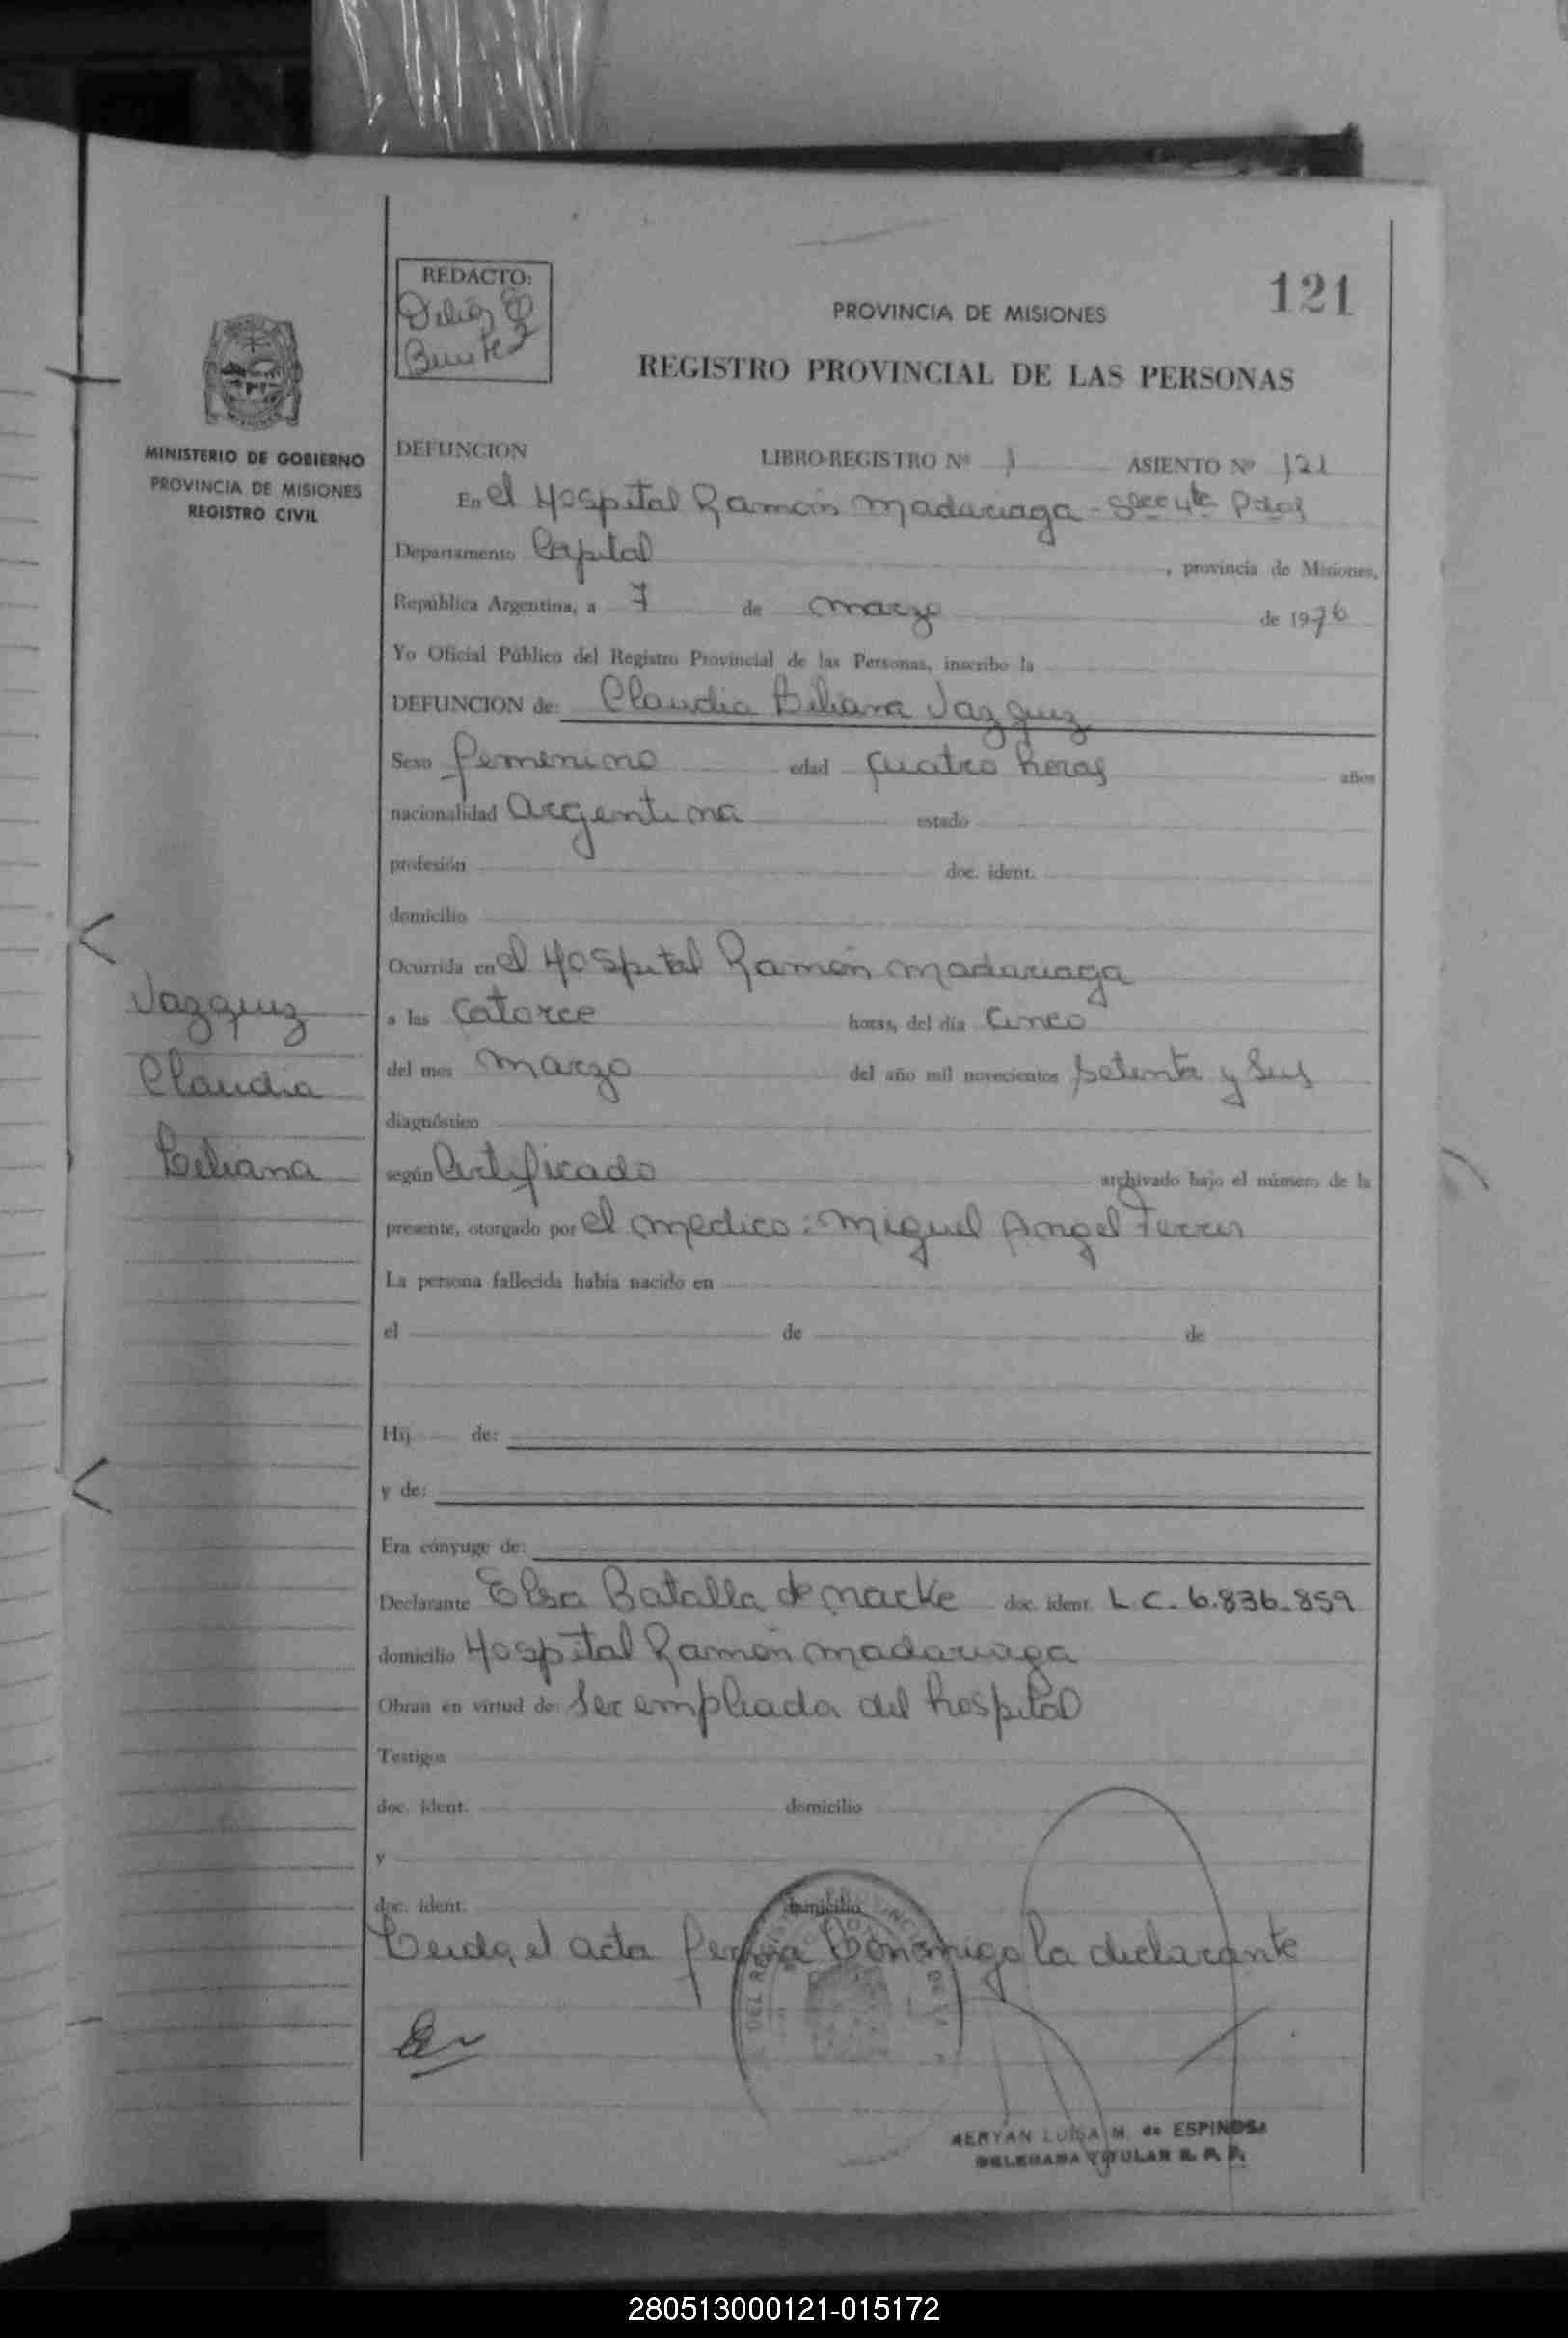 121
REDACTO:
Delia E
Benitez
PROVINCIA DE MISIONES
REGISTRO PROVINCIAL DE LAS PERSONAS
MINISTERIO DE GOBIERNO
PROVINCIA DE MISIONES
REGISTRO CIVIL
DEFUNCION LIBRO-REGISTRO Nº 1 ASIENTO Nº 121
En el Hospital Ramón Madariaga - Pdas
Departamento Capital , provincia de Misiones,
República Argentina, a 7 de marzo de 1976
Yo Oficial Público del Registro Provincial de las Personas, inscribo la
DEFUNCION de: Claudia Liliana Vazquez
Sexo femenino edad cuatro horas años
nacionalidad argentina estado
profesión doc. ident.
domicilio
Ocurrida en el Hospital Ramón Madariaga
a las catorce horas, del día cinco
del mes marzo del año mil novecientos setenta y seis
diagnóstico
Vazquez
Claudia
Liliana
según Certificado archivado bajo el número de la
presente, otorgado por el medico: Miguel Angel Ferrer
La persona fallecida había nacido en
el de de
Hij de:
y de:
Era cónyuge de:
Declarante Elsa Batalla de Macke doc. ident. L.C. 6.836.859
domicilio Hospital Ramón Madariaga
Obran en virtud de: Ser empleada del hospital
Testigos
doc. ident. domicilio
y
doc. ident. domicilio
Leida, el acta firma Conmigo la declarante
MERYAN LUISA M. de ESPINOSA
DELEGADA TITULAR R. P. P.
280513000121-015172